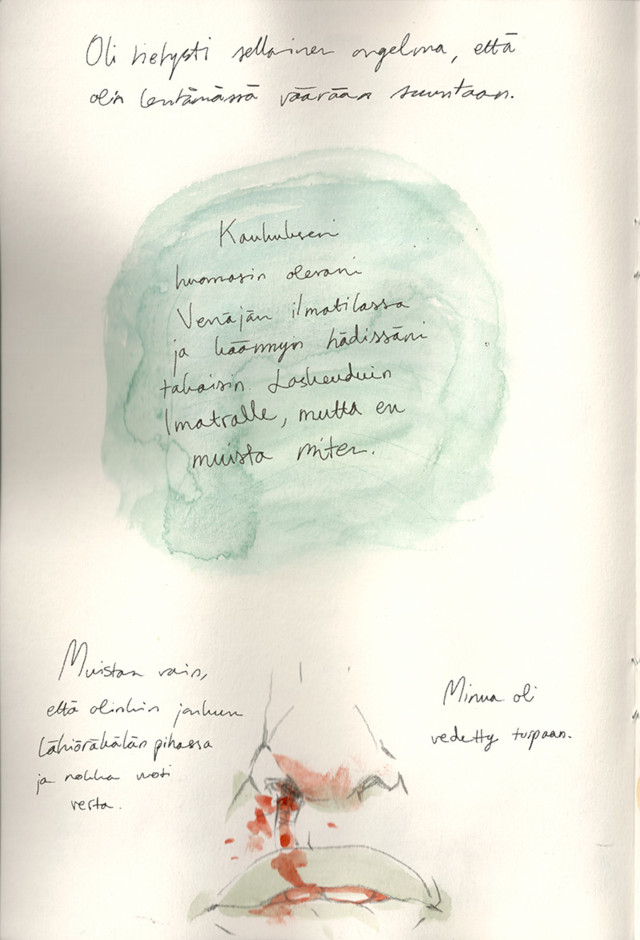 Oli tietysti sellainen ongelma, että
olin lentämässä väärään suuntaan.
Kauhukseni
huomasin olevani
Venäjän ilmatilassa
ja käännyin hädissäni
takaisin. Laskeuduin
Imatralle, mutta en
muista miten.
Muistan vain,
että olinkin jonkun
lähiöräkälän pihassa
ja nokka vuoti
verta.
Minua oli
vedetty turpaan.